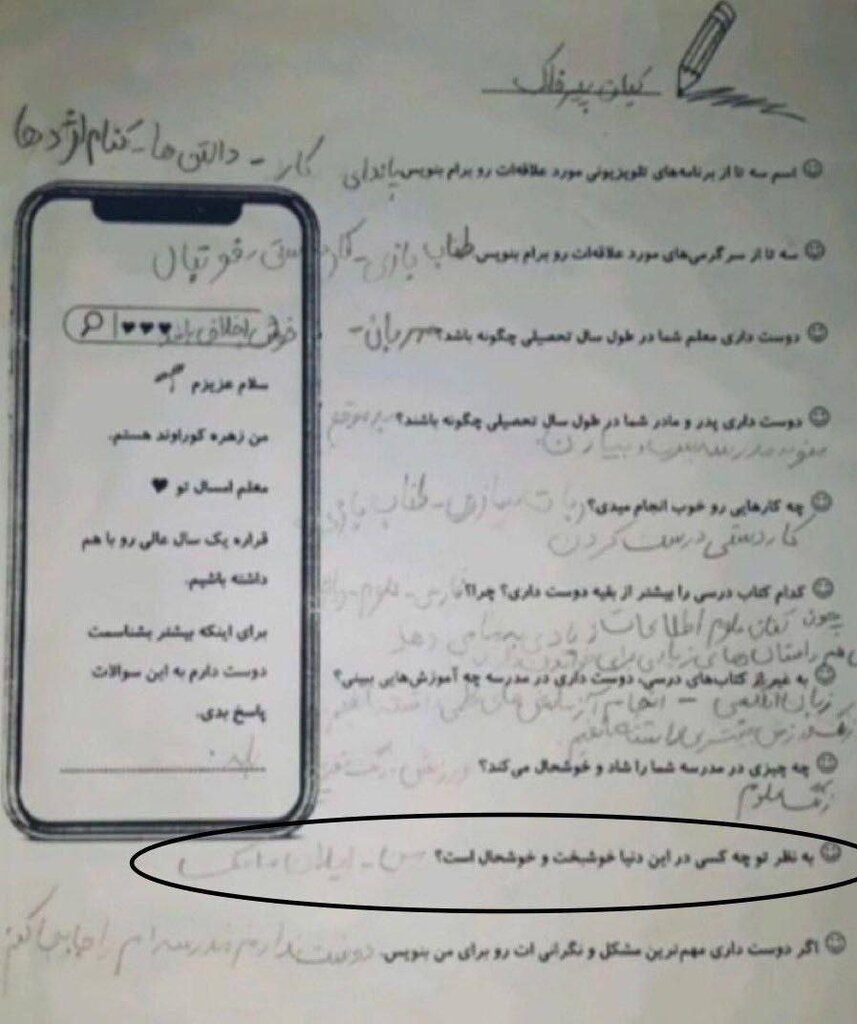 کیان پیرفلک
اسم سه تا از برنامه‌های تلویزیونی مورد علاقه‌ات رو برام بنویس پاندای کار - دالتن ها - کنام اژدها
سه تا از سرگرمی‌های مورد علاقه‌ات رو برام بنویس طناب بازی - کاردستی - فوتبال
دوست داری معلم شما در طول سال تحصیلی چگونه باشد؟ مهربان - خوش اخلاق باشد
دوست داری پدر و مادر شما در طول سال تحصیلی چگونه باشند؟ به موقع
منو به مدرسه ببرند و بیارن.
چه کارهایی رو خوب انجام میدی؟ ربات سازی - طناب بازی
کاردستی درست کردن
کدام کتاب درسی را بیشتر از بقیه دوست داری؟ چرا؟ فارسی - علوم
چون کتاب علوم اطلاعات زیادی به ما می دهد
هم داستان های زیبایی برای
به غیر از کتاب‌های درسی، دوست داری در مدرسه چه آموزش‌هایی ببینی؟
زبان انگلیسی - انجام آزمایش های علمی داشته باشیم
زنگ ورزش بیشتری داشته باشیم
چه چیزی در مدرسه شما را شاد و خوشحال می‌کند؟ ورزش - زنگ
زنگ علوم
به نظر تو چه کسی در این دنیا خوشبخت و خوشحال است؟ من - ایلان ماسک
اگر دوست داری مهم‌ترین مشکل و نگرانی ات رو برای من بنویس. دوست ندارم مدرسه ام را جابجا کنم
♥♥♥
سلام عزیزم
من زهره کوراوند هستم.
معلم امسال تو ♥
قراره یک سال عالی رو با هم
داشته باشیم.
برای اینکه بیشتر بشناسمت
دوست دارم به این سوالات
پاسخ بدی.